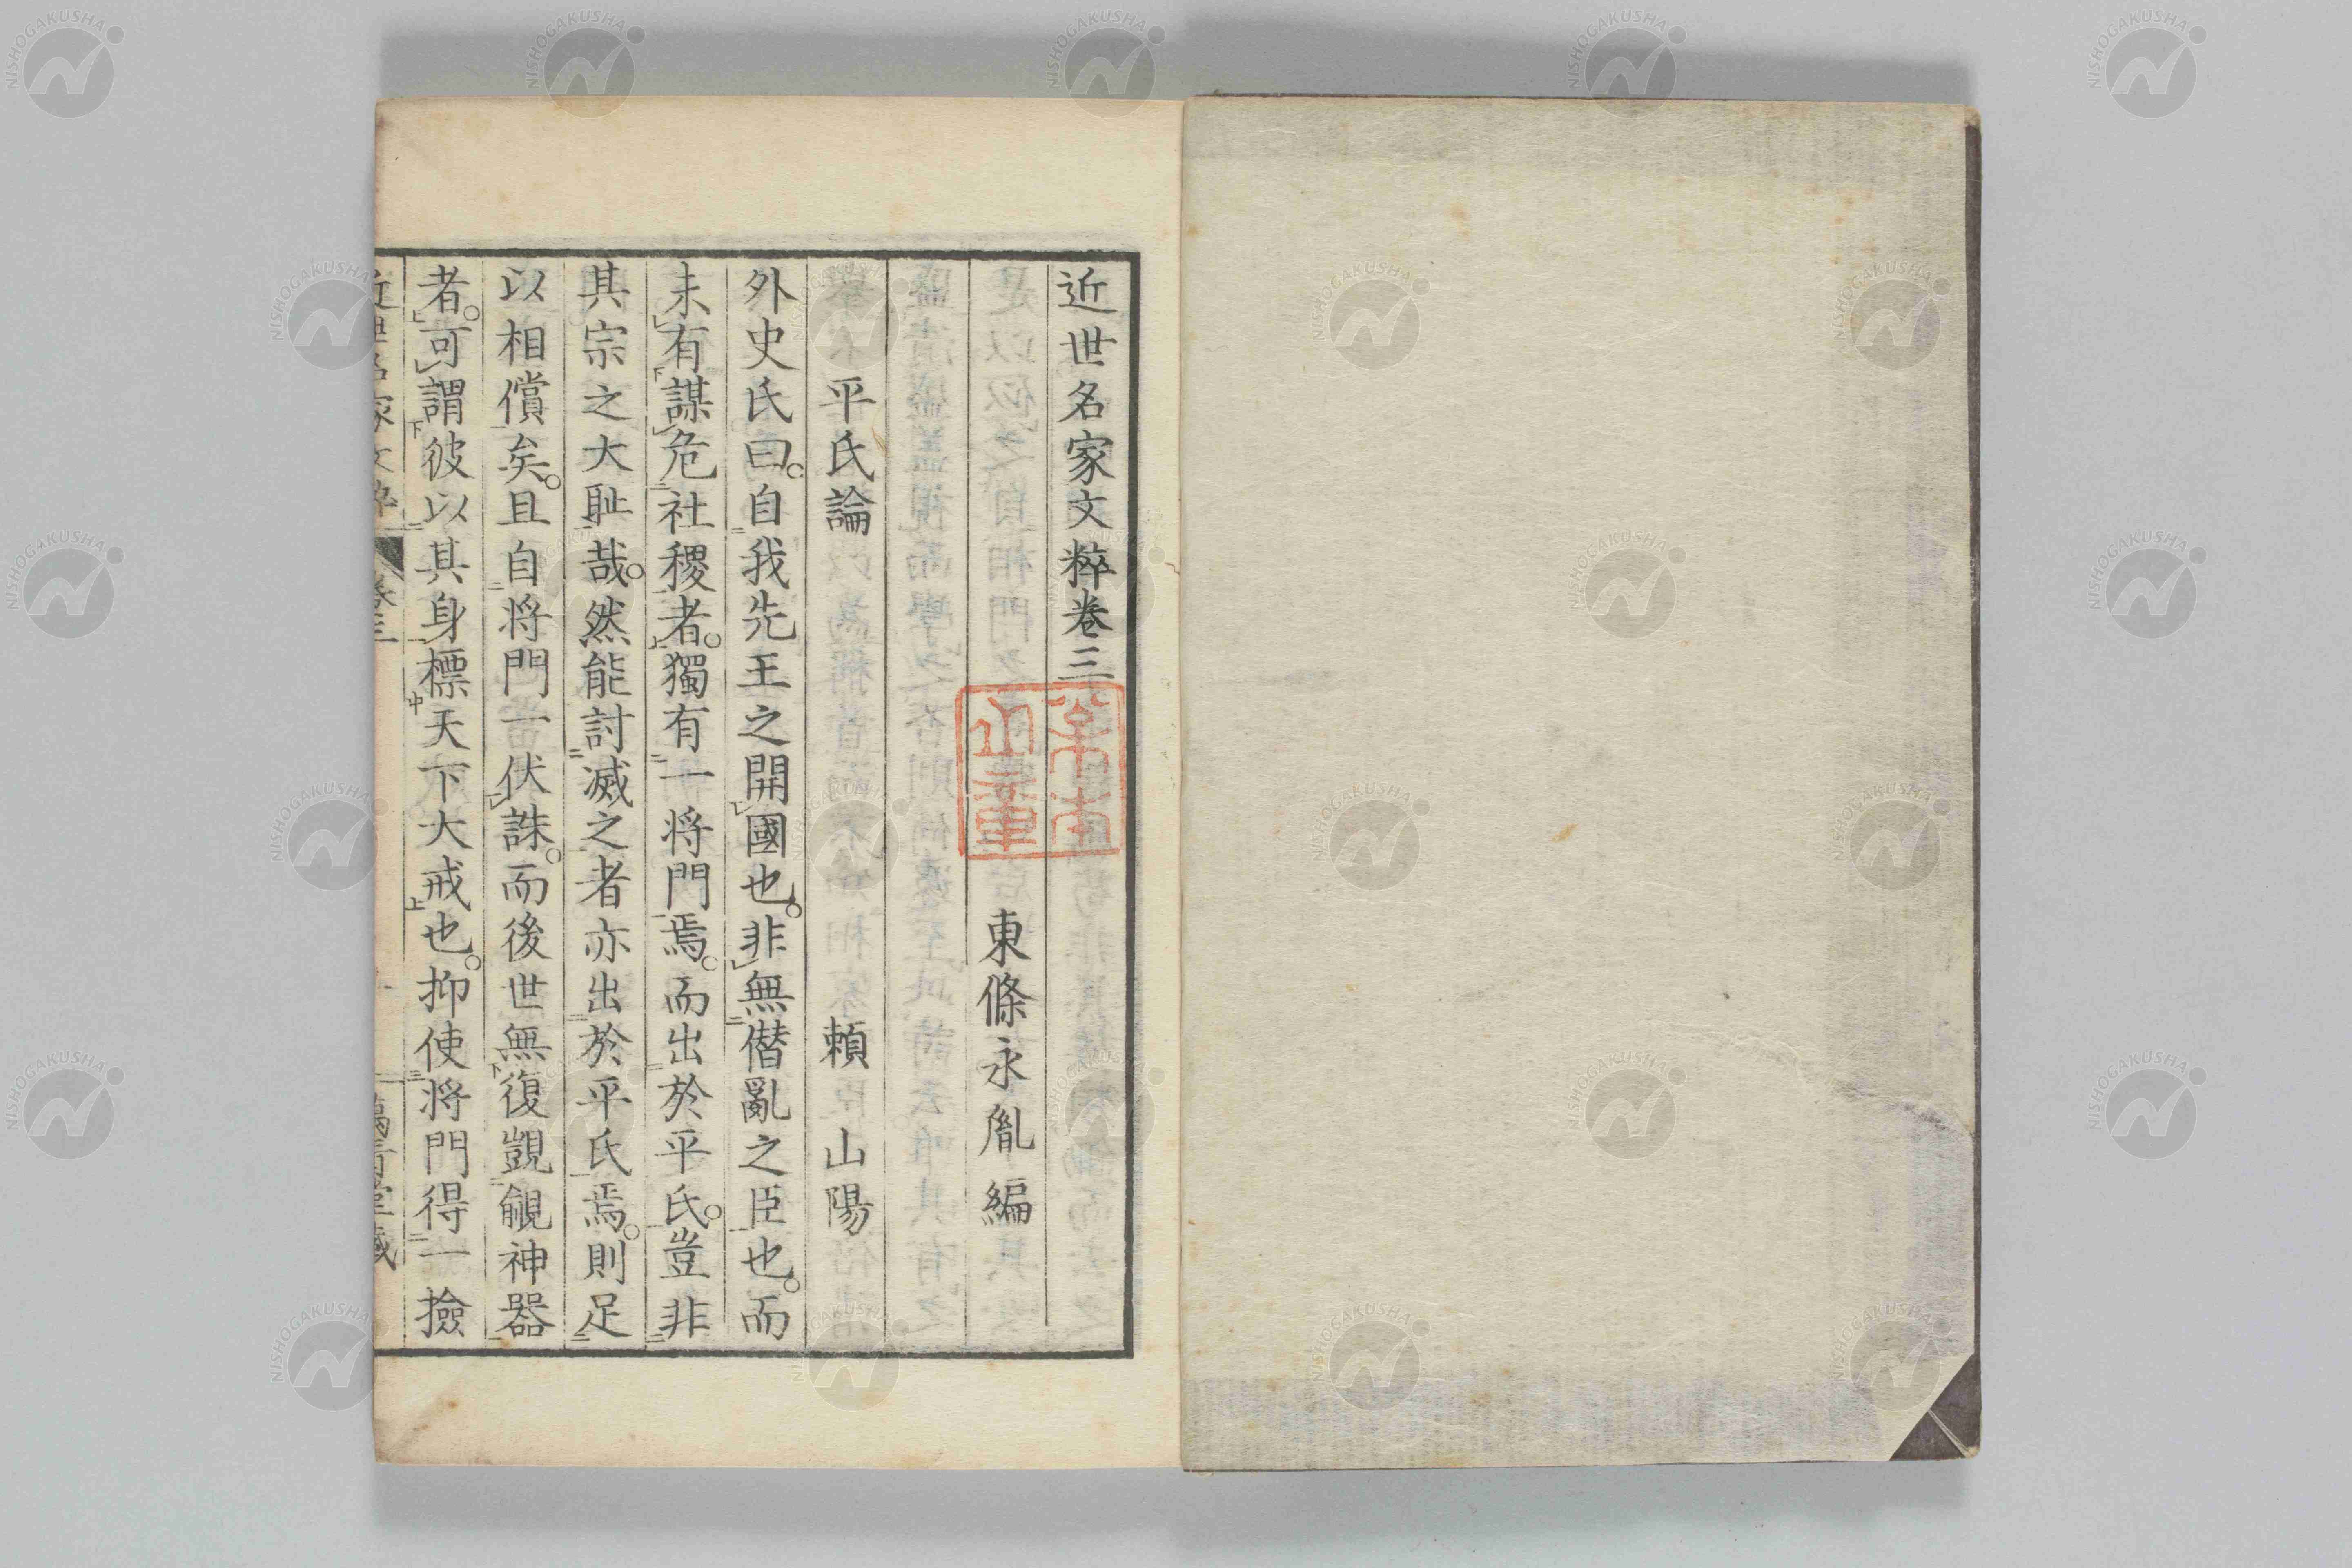 近世名家文粹卷三
東條永胤編
平氏論 賴山陽
外史氏曰。自我先王之開國也。非無僭亂之臣也。而
未有謀危社稷者。獨有一將門焉。而出於平氏。豈非
其宗之大耻哉。然能討滅之者亦出於平氏焉。則足
以相償矣。且自將門一伏誅。而後世無復覬覦神器
者。可謂彼以其身標天下大戒也。抑使將門得一撿
近世名家文粹 卷三
NISHOGAKUSHA